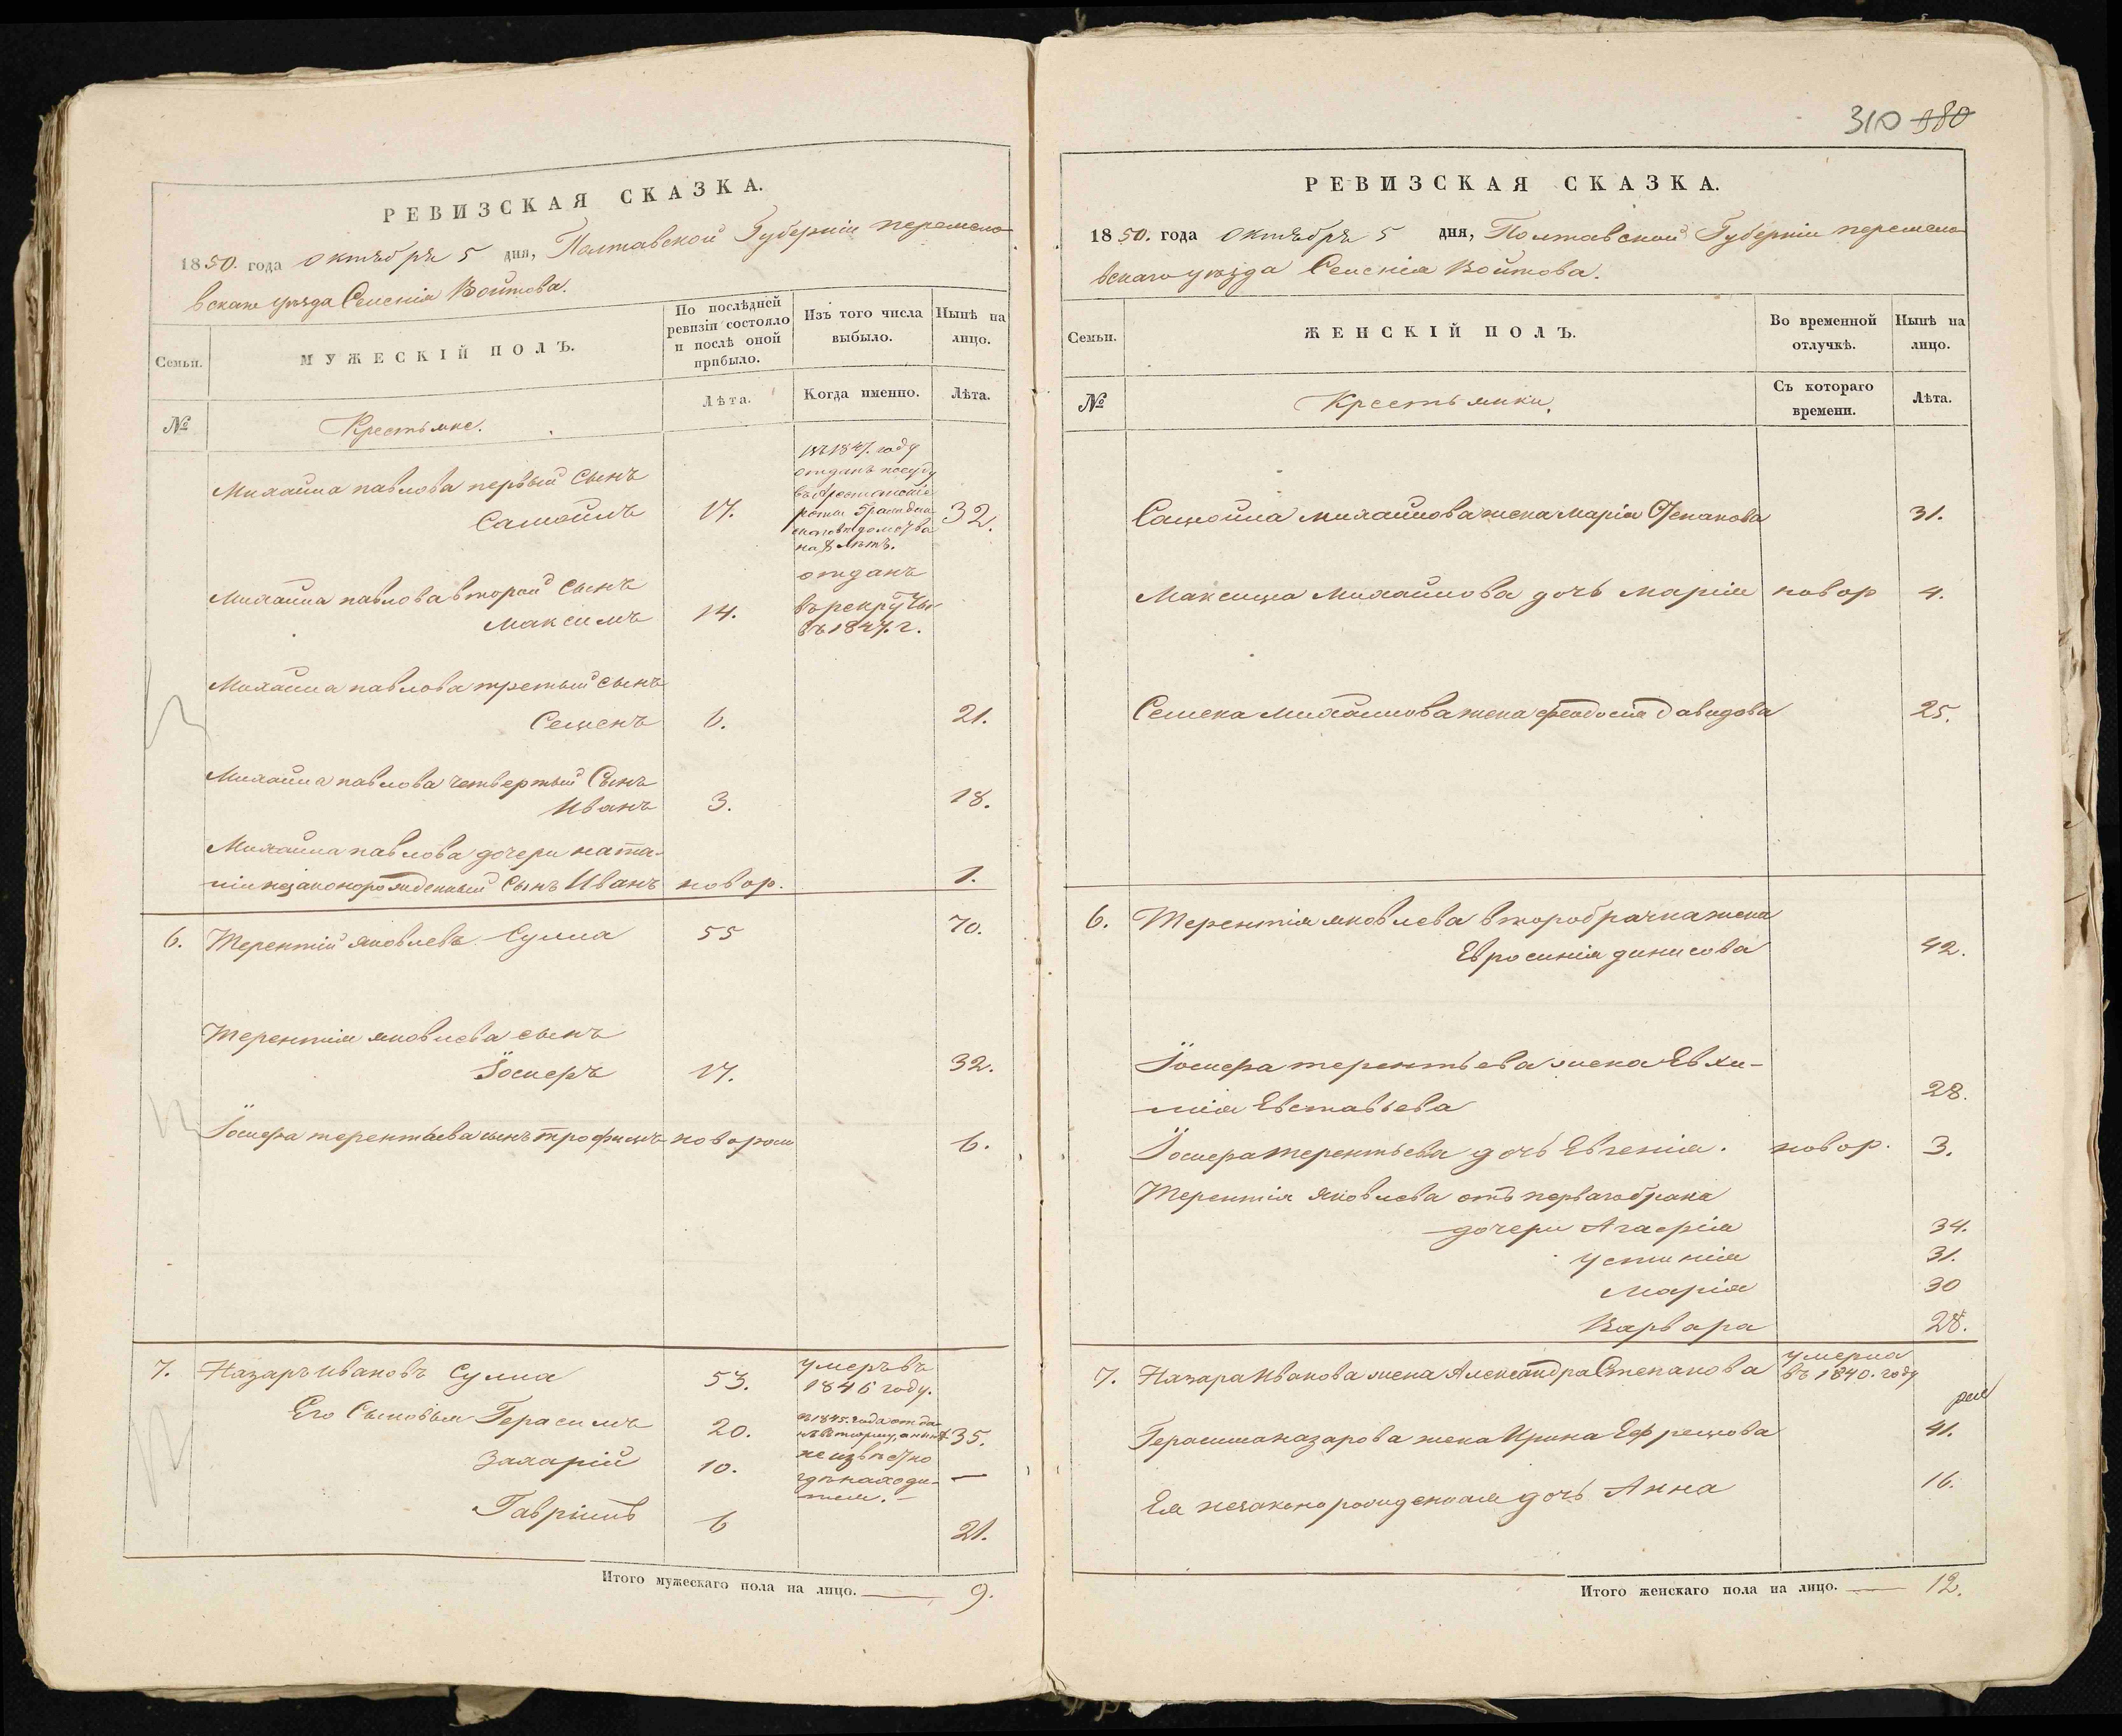 РЕВИЗСКАЯ СКАЗКА.
1850. года октября 5 дня, Полтавской Губерніи переясла
вскаго уезда Селенія Войтова.
Семьи.
МУЖЕСКІЙ ПОЛЪ.
По послѣдней ревизіи состояло и послѣ оной прибыло.
Изъ того числа выбыло.
Нынѣ на лицо.
№
Крестьяне.
Лѣта.
Когда именно.
Лѣта.
Михайла павлова первый сынъ
Самойлъ 17. 32.
въ 1847. году
отданъ посуду
въ Арестанскіе
роты Граждан
на лѣтъ.
Михайла павлова второй сынъ
Максимъ 14.
отданъ
въ рекруты
въ 1847. г.
Михайла павлова третьй сынъ
Семенъ 6. 21.
Михайла павлова четвертый Сынъ
Иванъ 3. 18.
Михайла павлова дочери ната-
ліи незаконорожденный Сынъ Иванъ новор. 1.
6. Терентій яковлевъ Сулиа 55 70.
Терентія яковлева сынъ
Іосиѳъ 17. 32.
Іосифа терентьева сынъ трофимъ новорож 6.
7. Назаръ ивановъ Сулиа 53. умеръ въ
1846 году.
Его Сыновья Герасимъ 20. 35.
въ 1845. года отда
Захарій 10. неизвѣстно —
гдѣ находи-
тся. —
Гавріилъ 6 21.
Итого мужескаго пола на лицо. — 9.
310 380
РЕВИЗСКАЯ СКАЗКА.
1850. года октября 5 дня, Полтавской Губерніи переясла
вскаго уезда Селенія Войтова.
Семьи.
ЖЕНСКІЙ ПОЛЪ.
Во временной отлучкѣ.
Нынѣ на лицо.
№
Крестьянки.
Съ котораго времени.
Лѣта.
Самойла михайлова жена марія Степанова 31.
Максима Михайлова дочь марія новор 4.
Семена Михайлова жена феодосія давидова 25.
6. Терентія яковлева второбрачна жена
Евросинія динисова 42.
Іосифа терентьева жена Евхи-
мія Евставьева 28.
Іосифа терентьева дочь Евгенія. новор. 3.
Терентія яковлева отъ перваго брака
дочери Агафія 34.
устинія 31.
марія 30
Варвара 28.
7. Назара Иванова жена Александра Степанова умерла
въ 1840. году
Герасима назарова жена Ирина Ефремова 41.
Ея незаконорожденная дочь Анна 16.
Итого женскаго пола на лицо. — 12.